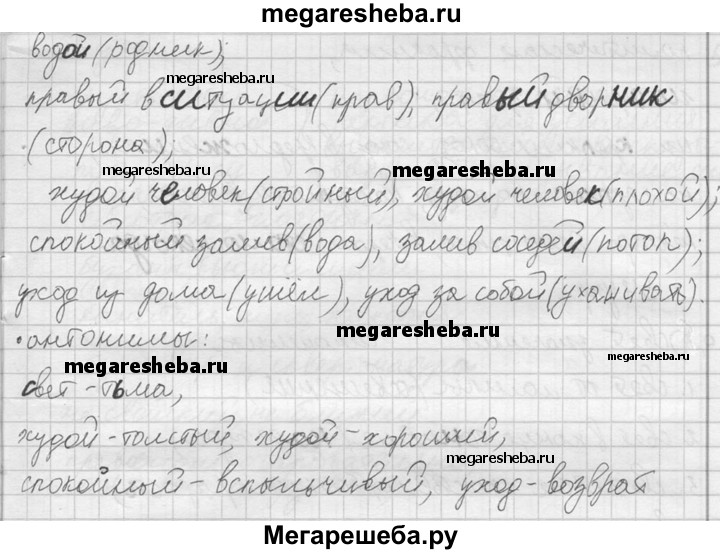 megaresheba.ru
водой (родник);
megaresheba.ru
правый в ситуации (прав), правый дворник
(сторона);
megaresheba.ru
megaresheba.ru
худой человек (стройный), худой человек (плохой);
спокойный залив (вода), залив соседей (потоп);
уход из дома (ушёл), уход за собой (ухаживать).
• антонимы:
megaresheba.ru
megaresheba.ru
megaresheba.ru
свет - тьма,
худой - толстый, худой - хороший,
megaresheba.ru
спокойный - вспыльчивый, уход - возврат
Мегарешеба.ру